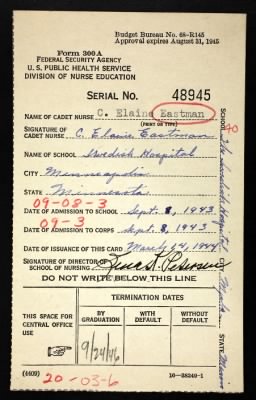 Budget Bureau No. 68-R145
Approval expires August 31, 1945
Form 300A
FEDERAL SECURITY AGENCY
U. S. PUBLIC HEALTH SERVICE
DIVISION OF NURSE EDUCATION
SERIAL NO. 48945
NAME OF CADET NURSE C. Elaine Eastman
(PRINT OR TYPE)
SIGNATURE OF CADET NURSE C. Elaine Eastman
NAME OF SCHOOL Swedish Hospital
CITY Minneapolis
STATE Minnesota
09-08-3
DATE OF ADMISSION TO SCHOOL Sept. 8, 1943
09-3
DATE OF ADMISSION TO CORPS Sept. 8, 1943
DATE OF ISSUANCE OF THIS CARD March 14, 1944
SIGNATURE OF DIRECTOR OF SCHOOL OF NURSING
DO NOT WRITE BELOW THIS LINE
THIS SPACE FOR CENTRAL OFFICE USE
TERMINATION DATES
BY GRADUATION
WITH DEFAULT
WITHOUT DEFAULT
9/24/46
(4409)
20-03-6
16-38249-1
SCHOOL
STATE